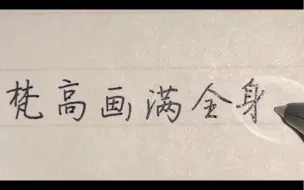 梵高画满全身